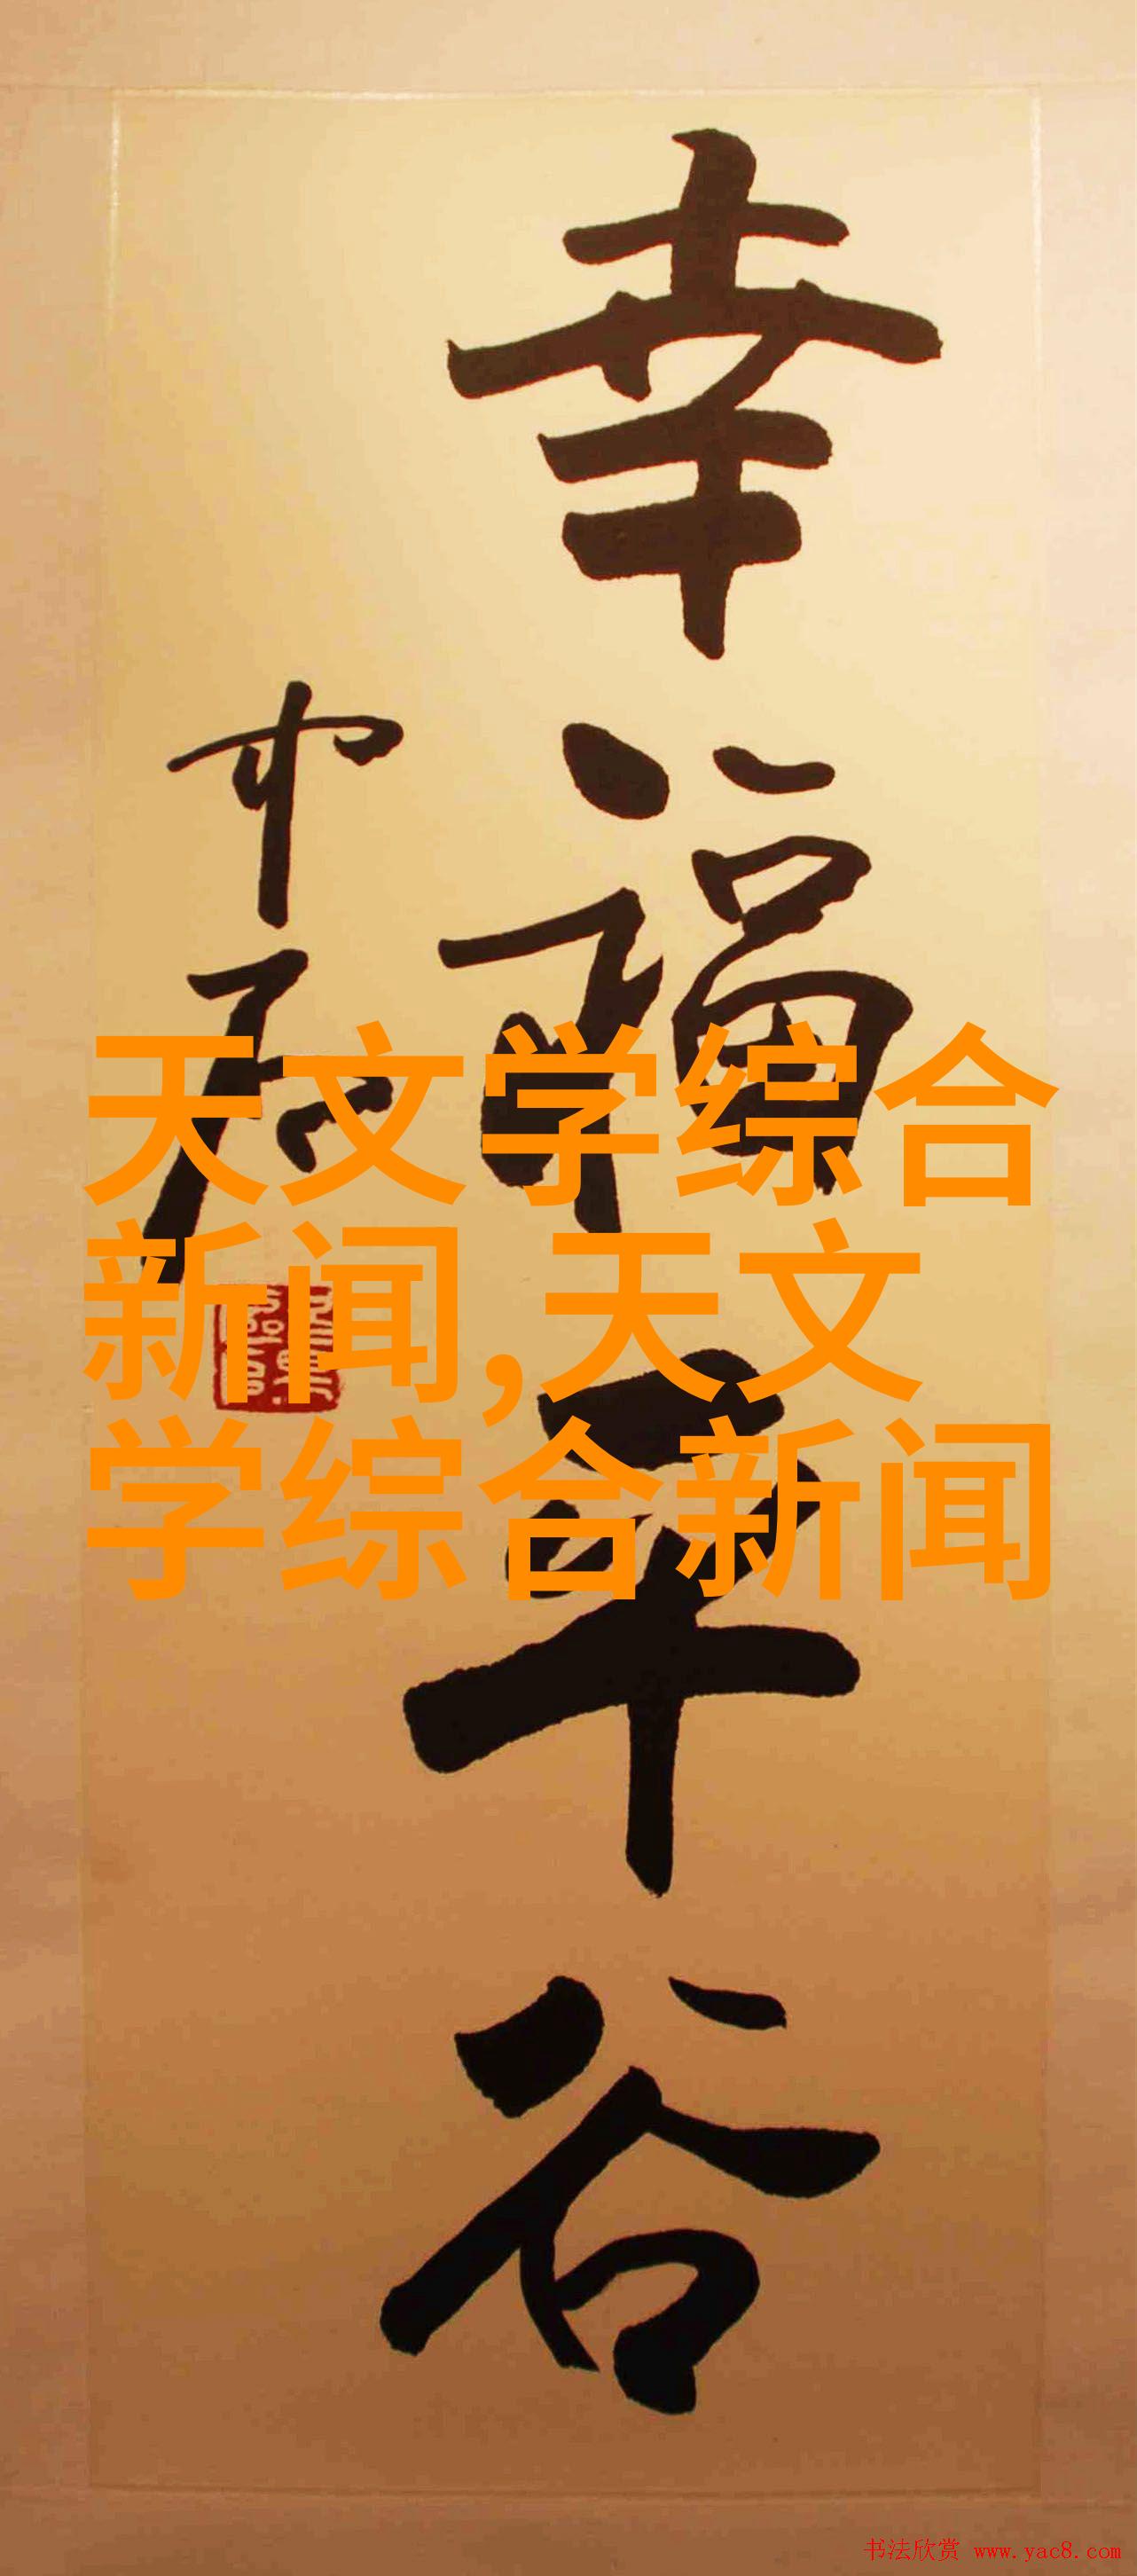 幸福平谷
中石
天文学综合
新闻,天文
学综合新闻
书法欣赏 www.yac8.com